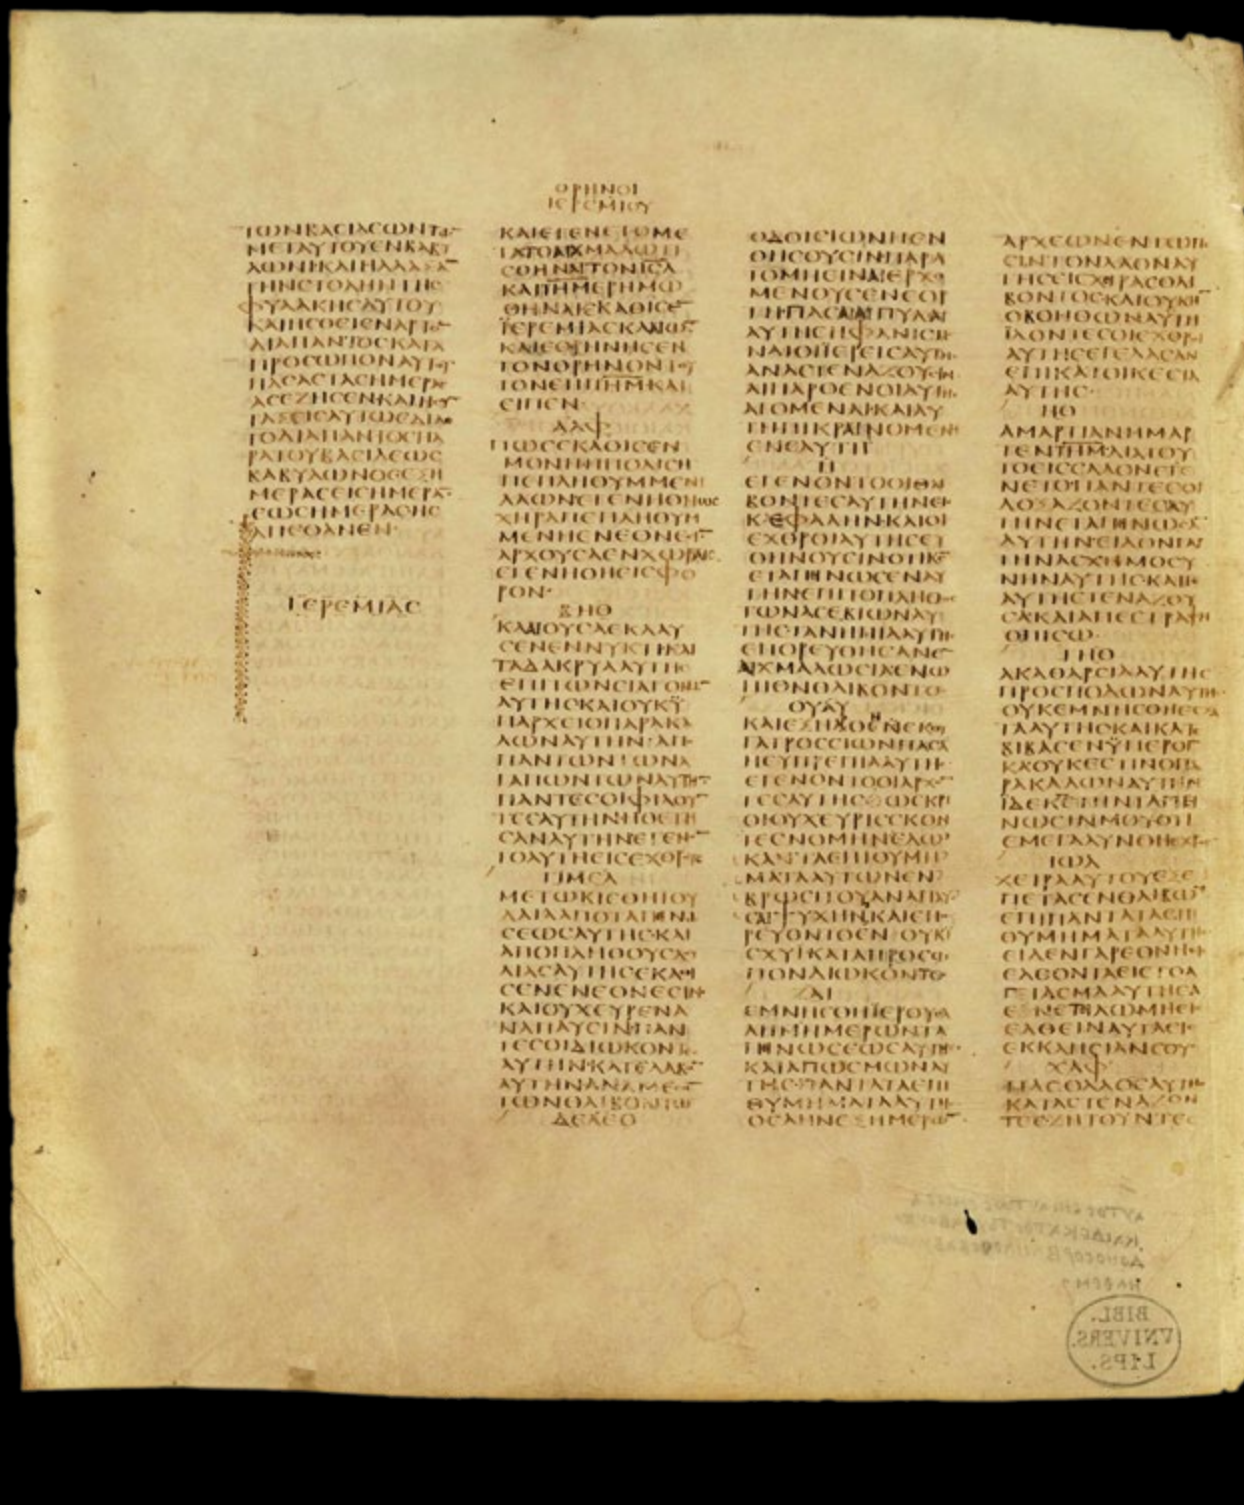 ΘΡΗΝΟΙ
ΙΕΡΕΜΙΟΥ
ΤΩΝΒΑCΙΛΕΩΝΤΩ̅
ΜΕΤΑΥΤΟΥΕΝΒΑΒΥ
ΛΩΝΙΚΑΙΗΛΛΑΞΕ̅
ΤΗΝCΤΟΛΗΝΤΗC
ΦΥΛΑΚΗCΑΥΤΟΥ
ΚΑΙΗCΘΙΕΝΑΡΤΟ̅
ΔΙΑΠΑΝΤΟCΚΑΤΑ
ΠΡΟCΩΠΟΝΑΥΤΟΥ
ΠΑCΑCΤΑCΗΜΕΡΑC
ΑCΕΖΗCΕΝΚΑΙΗCΥ̅
ΤΑΞΕΙCΑΥΤΩΕΔΙΔΟ
ΤΟΔΙΑΠΑΝΤΟCΠΑ
ΡΑΤΟΥΒΑCΙΛΕΩC
ΒΑΒΥΛΩΝΟCΕΞΗ
ΜΕΡΑCΕΙCΗΜΕΡΑ̅
ΕΩCΗΜΕΡΑCΗC
ΑΠΕΘΑΝΕΝ
ΙΕΡΕΜΙΑC
ΚΑΙΕΓΕΝΕΤΟΜΕ
ΤΑΤΟΑΙΧΜΑΛΩΤΙ
CΘΗΝΑΙΤΟΝΙC̅Λ̅
ΚΑΙΙΗ̅Μ̅ΕΡΗΜΩ
ΘΗΝΑΙΕΚΑΘΙCΕ̅
ΪΕΡΕΜΙΑCΚΛΑΙΩ̅
ΚΑΙΕΘΡΗΝΗCΕΝ
ΤΟΝΘΡΗΝΟΝΤΟΥ
ΤΟΝΕΠΙΙΗ̅Μ̅ΚΑΙ
ΕΙΠΕΝ
ΑΛΦ
ΠΩCΕΚΑΘΙCΕΝ
ΜΟΝΗΗΠΟΛΙCΗ
ΠΕΠΛΗΘΥΜΜΕΝΗ
ΛΑΩΝΕΓΕΝΗΘΗΩC
ΧΗΡΑΠΕΠΛΗΘΥΜ
ΜΕΝΗΕΝΕΘΝΕCΙ̅
ΑΡΧΟΥCΑΕΝΧΩΡΑΙC
ΕΓΕΝΗΘΗΕΙCΦΟ
ΡΟΝ
ΒΗΘ
ΚΛΑΙΟΥCΑΕΚΛΑΥ
CΕΝΕΝΝΥΚΤΙΚΑΙ
ΤΑΔΑΚΡΥΑΑΥΤΗC
ΕΠΙΤΩΝCΙΑΓΟΝΩ̅
ΑΥΤΗCΚΑΙΟΥΚΫ
ΠΑΡΧΕΙΟΠΑΡΑΚΑ
ΛΩΝΑΥΤΗΝΑΠΟ
ΠΑΝΤΩΝΤΩΝΑ
ΓΑΠΩΝΤΩΝΑΥΤΗ̅
ΠΑΝΤΕCΟΙΦΙΛΟΥ̅
ΤΕCΑΥΤΗΝΗΘΕΤΗ
CΑΝΑΥΤΗΝΕΓΕΝΟ̅
ΤΟΑΥΤΗCΕΙCΕΧΘΡΟΥC
ΓΙΜΕΛ
ΜΕΤΩΚΙCΘΗΙΟΥ
ΔΑΙΑΑΠΟΤΑΠΙΝΩ
CΕΩCΑΥΤΗCΚΑΙ
ΑΠΟΠΛΗΘΟΥCΔΟΥ
ΛΙΑCΑΥΤΗCΕΚΑΘΙ
CΕΝΕΝΕΘΝΕCΙΝ
ΚΑΙΟΥΧΕΥΡΕΝΑ
ΝΑΠΑΥCΙΝΠΑΝ
ΤΕCΟΙΔΙΩΚΟΝΤΕC
ΑΥΤΗΝΚΑΤΕΛΑΒΟ̅
ΑΥΤΗΝΑΝΑΜΕCΟ̅
ΤΩΝΘΛΙΒΟΝΤΩ̅
ΔΕΛΕΘ
ΟΔΟΙCΙΩΝΠΕΝ
ΘΗCΟΥCΙΝΠΑΡΑ
ΤΟΜΗΕΙΝΑΙΕΡΧΟ
ΜΕΝΟΥCΕΝΕΟΡ
ΤΗΠΑCΑΙΑΙΠΥΛΑΙ
ΑΥΤΗCΗΦΑΝΙCΜΕ
ΝΑΙΟΙΪΕΡΕΙCΑΥΤΗC
ΑΝΑCΤΕΝΑΖΟΥCΙΝ
ΑΙΠΑΡΘΕΝΟΙΑΥΤΗC
ΑΓΟΜΕΝΑΙΚΑΙΑΥ
ΤΗΠΙΚΡΑΙΝΟΜΕΝΗ
ΕΝΕΑΥΤΗ
Η
ΕΓΕΝΟΝΤΟΟΙΘΛΙ
ΒΟΝΤΕCΑΥΤΗΝΕΙC
ΚΕΦΑΛΗΝΚΑΙΟΙ
ΕΧΘΡΟΙΑΥΤΗCΕΥ
ΘΗΝΟΥCΙΝΟΤΙΚC̅
ΕΤΑΠΙΝΩCΕΝΑΥ
ΤΗΝΕΠΙΤΟΠΛΗΘΟC
ΤΩΝΑCΕΒΙΩΝΑΥ
ΤΗCΤΑΝΗΠΙΑΑΥΤΗC
ΕΠΟΡΕΥΘΗCΑΝΕ̅
ΑΙΧΜΑΛΩCΙΑΕΝΩ
ΠΙΟΝΘΛΙΒΟΝΤΟC
ΟΥΑΥ
ΚΑΙΕΞΗΛΘΕΝΕΚΘΥ
ΓΑΤΡΟCCΙΩΝΠΑCΑ
ΗΕΥΠΡΕΠΙΑΑΥΤΗC
ΕΓΕΝΟΝΤΟΟΙΑΡΧΟ̅
ΤΕCΑΥΤΗCΩCΚΡΙ
ΟΙΟΥΧΕΥΡΙCΚΟΝ
ΤΕCΝΟΜΗΝΕΔΙΩ
ΚΑΝ
ΖΑΙ
ΕΜΝΗCΘΗΪΕΡΟΥCΑ
ΛΗΜΗΜΕΡΩΝΤΑ
ΠΙΝΩCΕΩCΑΥΤΗC
ΚΑΙΑΠΩCΜΩΝΑΥ
ΤΗCΠΑΝΤΑΤΑΕΠΙ
ΘΥΜΗΜΑΤΑΑΥΤΗC
ΟCΑΗΝΕΞΗΜΕΡΩ̅
ΑΡΧΕΩΝΕΝΤΩΠΕ
CΙΝΤΟΝΛΑΟΝΑΥ
ΤΗCΕΙCΧΙΡΑCΘΛΙ
ΒΟΝΤΟCΚΑΙΟΥΚΗ̅
ΟΒΟΗΘΩΝΑΥΤΗ
ΪΔΟΝΤΕCΟΙΕΧΘΡΟΙ
ΑΥΤΗCΕΓΕΛΑCΑΝ
ΕΠΙΚΑΤΟΙΚΕCΙΑ
ΑΥΤΗC
ΗΘ
ΑΜΑΡΤΙΑΝΗΜΑΡ
ΤΕΝΙΗ̅Μ̅ΔΙΑΤΟΥ
ΤΟΕΙCCΑΛΟΝΕΓΕ
ΝΕΤΟΠΑΝΤΕCΟΙ
ΔΟΞΑΖΟΝΤΕCΑΥ
ΤΗΝΕΤΑΠΙΝΩCΑ̅
ΑΥΤΗΝΕΙΔΟΝΓΑΡ
ΤΗΝΑCΧΗΜΟCΥ
ΝΗΝΑΥΤΗCΚΑΙΓΕ
ΑΥΤΗCΤΕΝΑΖΟΥ
CΑΚΑΙΑΠΕCΤΡΑΦΗ
ΟΠΙCΩ
ΤΗΘ
ΑΚΑΘΑΡCΙΑΑΥΤΗC
ΠΡΟCΠΟΔΩΝΑΥΤΗC
ΟΥΚΕΜΝΗCΘΗΕCΧΑ
ΤΑΑΥΤΗCΚΑΙΚΑΤΕ
ΒΙΒΑCΕΝΫΠΕΡΟΓ
ΚΑΟΥΚΕCΤΙΝΟΠΑ
ΡΑΚΑΛΩΝΑΥΤΗΝ
ΪΔΕΚ̅Ε̅ΤΗΝΤΑΠΙ
ΝΩCΙΝΜΟΥΟΤΙ
ΕΜΕΓΑΛΥΝΘΗΕΧΘΡΟC
ΙΩΔ
ΧΕΙΡΑΑΥΤΟΥΕΞΕ
ΠΕΤΑCΕΝΘΛΙΒΩ̅
ΕΠΙΠΑΝΤΑΤΑΕΠΙ
ΘΥΜΗΜΑΤΑΑΥΤΗC
ΕΙΔΕΝΓΑΡΕΘΝΗ
ΕΛΘΟΝΤΑΕΙCΤΟΑ
ΓΙΑCΜΑΑΥΤΗCΑ
ΕΝΕΤΙΛΩΜΗΕΙ
ΕΛΘΕΙΝΑΥΤΑΕΙC
ΕΚΚΛΗCΙΑΝCΟΥ
ΧΑΦ
ΠΑCΟΛΑΟCΑΥΤΗC
ΚΑΤΑCΤΕΝΑΖΟΝ
ΤΕCΖΗΤΟΥΝΤΕC
BIBL.
VNIVERS.
LIPS.